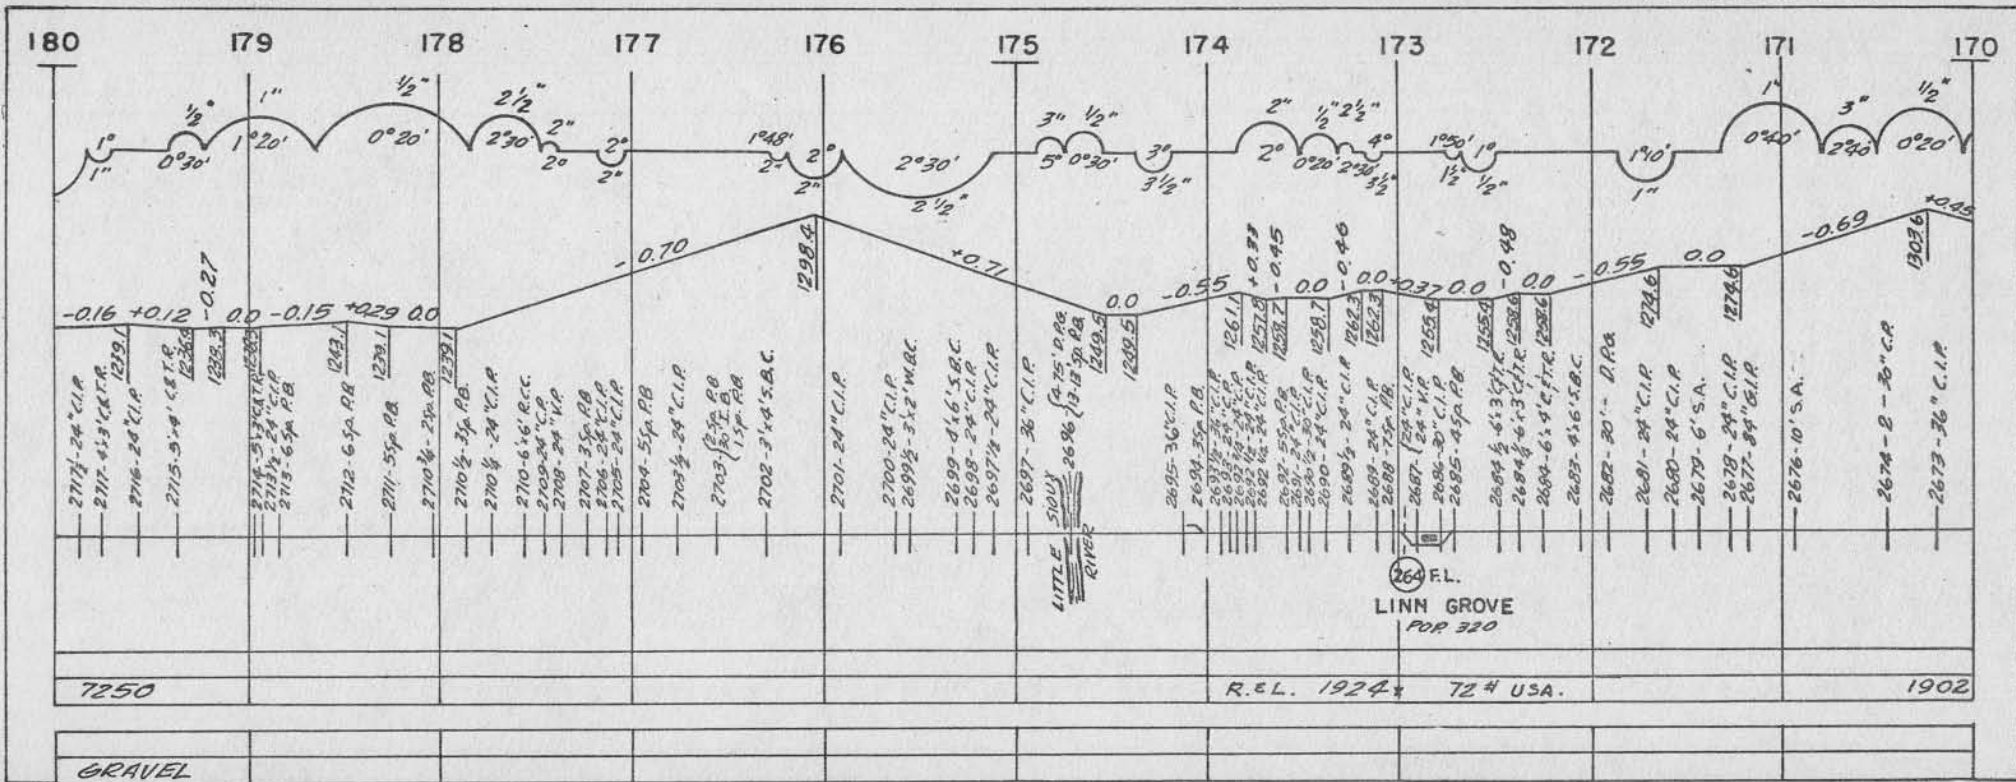 180 179 178 177 176 175 174 173 172 171 170
1° 1" ½" 0°30' 1" 1°20' ½" 0°20' 2½" 2°30' 2" 2° 2° 2" 1°48' 2" 2° 2" 2°30' 2½" 3" 5° ½" 0°30' 3° 3½" 2" 2° ½" 0°20' 2½" 2°30' 4° 3½" 1°50' 1½" 1° ½" 1°10' 1" 1" 0°40' 3" 2°40' ½" 0°20'
-0.16 +0.12 -0.27 0.0 -0.15 +0.29 0.0 -0.70 +0.71 0.0 -0.55 +0.33 -0.45 0.0 -0.46 0.0 +0.37 0.0 -0.48 0.0 -0.55 0.0 -0.69 +0.45
1239.1 1236.4 1239.3 1243.1 1239.1 1239.1 1298.4 1249.5 1249.5 1261.1 1257.8 1258.7 1258.7 1262.3 1262.3 1255.4 1255.4 1258.6 1258.6 1274.6 1274.6 1303.6
2717½-24"C.I.P.
2717-4'x3'C.&T.P.
2716-24"C.I.P.
2715-5'x4' C.&T.P.
2714-5'x3'C.&T.P.
2713½-24"C.I.P.
2713-6 Sp. P.B.
2712-6 Sp. P.B
2711-5Sp. P.B.
2710¾-2Sp. P.B.
2710½-3Sp. P.B.
2710¼-24"C.I.P.
2710-6'x6' R.C.
2709-24"C.P.
2708-24"V.P.
2707-3Sp. P.B
2706-24"C.I.P.
2705-24"C.I.P.
2704-5Sp. P.B
2703½-24"C.I.P.
2703-{2Sp. P.B
30' I.B.
1Sp. P.B.
2702-3'x4'S.B.C.
2701-24"C.I.P.
2700-24"C.I.P.
2699½-3'x2'W.B.C.
2699-4'x6'S.B.C.
2698-24"C.I.P.
2697½-24"C.I.P.
2697-36"C.I.P.
2696{4-75' D.P.G.
13-13'Sp. P.B.
LITTLE SIOUX
RIVER
2695-36"C.I.P.
2694-3Sp. P.B.
2693½-24"C.I.P.
2692-5Sp. P.B.
2691-24"C.I.P.
2690½-30"C.I.P.
2690-24"C.I.P.
2689½-24"C.I.P.
2689-24"C.I.P.
2688-7Sp. P.B.
2687-{24"C.I.P.
24"V.P.
2686-30"C.I.P.
2685-4Sp. P.B
2684½-6'x3'C.&T.R.
2684¼-6'x3'C.&T.R.
2684-6'x4'C.&T.R.
2683-4'x6'S.B.C.
2682-30'-D.P.G.
2681-24"C.I.P.
2680-24"C.I.P.
2679-6'S.A.
2678-24"C.I.P.
2677-84"G.I.P.
2676-10'S.A.
2674-2-36"C.P.
2673-36"C.I.P.
264 F.L.
LINN GROVE
POP. 320
7250 R.E.L. 1924 72# USA. 1902
GRAVEL